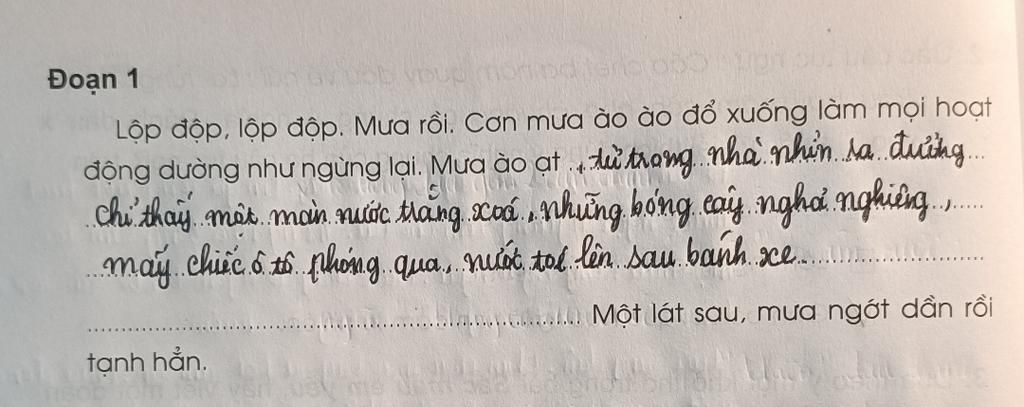 Đoạn 1
Lộp độp, lộp độp. Mưa rồi. Cơn mưa ào ào đổ xuống làm mọi hoạt
động dường như ngừng lại. Mưa ào ạt , từ trong nhà nhìn ra đường
chỉ thấy một màn nước trắng xoá, những bóng cây nghả nghiêng,
mấy chiếc ô tô phóng qua, nước toé lên sau bánh xe.
Một lát sau, mưa ngớt dần rồi
tạnh hẳn.